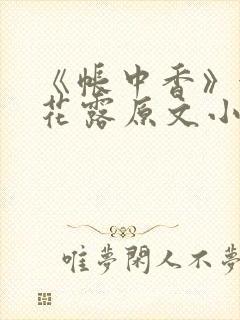 《帐中香》
花露原文小
唯夢閑人不夢